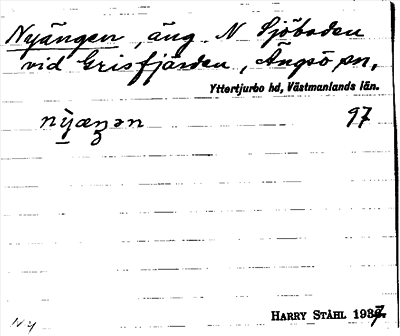 Nyängen, äng N Sjöboden
vid Grisfjärden, Ängsö sn,
Yttertjurbo hd, Västmanlands län.
nỳæŋən 97
HARRY STÅHL 1937.
Ny